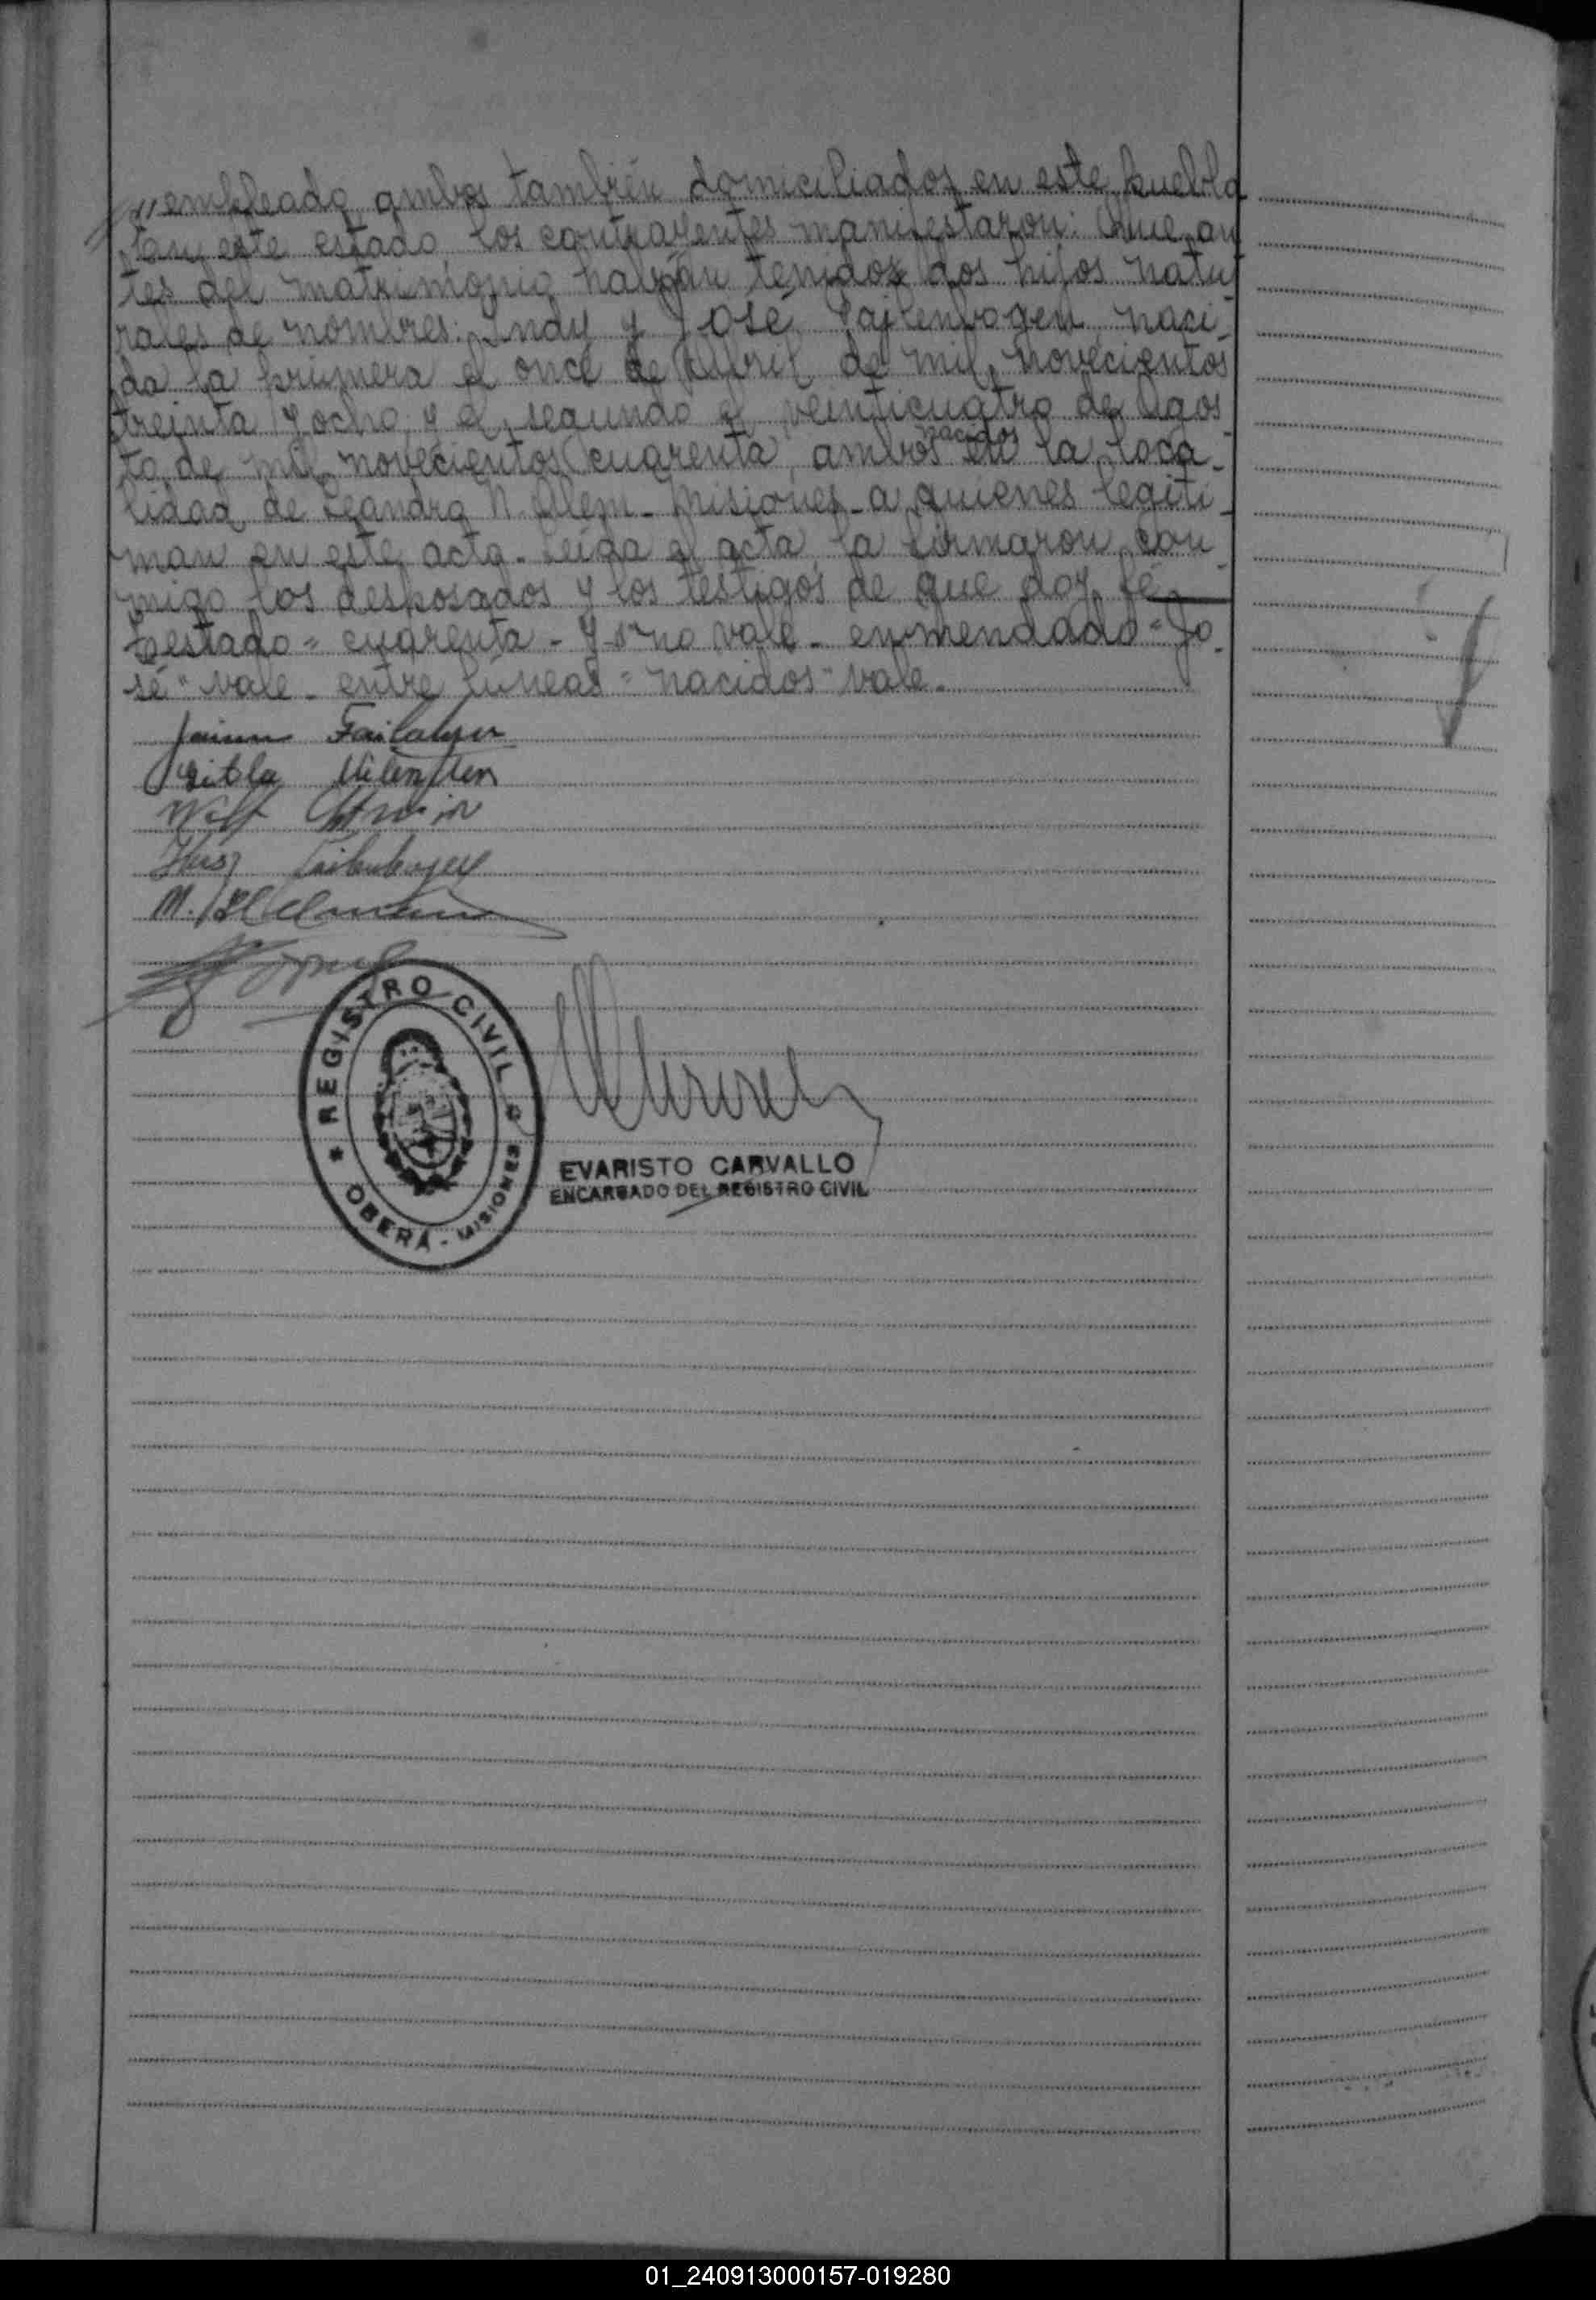 empleado, ambos también domiciliados en este pueblo
en este estado los contrayentes manifestaron: Que an
tes del matrimonio habían tenidos dos hijos natu
rales de nombres: Indy y José Failenbogen, naci-
da la primera el once de Abril de mil novecientos
treinta y ocho y el segundo el veinticuatro de Agos
to de mil novecientos cuarenta, ambos nacidos en la loca-
lidad de Leandro N. Alem - Misiones - a quienes legiti-
man en este acta. Leída el acta la firmaron con
migo los desposados y los testigos de que doy fé
testado = cuarenta - y s no vale - enmendado = Jo
sé" vale - entre líneas = nacidos" vale.
REGISTRO CIVIL
OBERÁ - MISIONES
EVARISTO CARVALLO
ENCARGADO DEL REGISTRO CIVIL
01_240913000157-019280